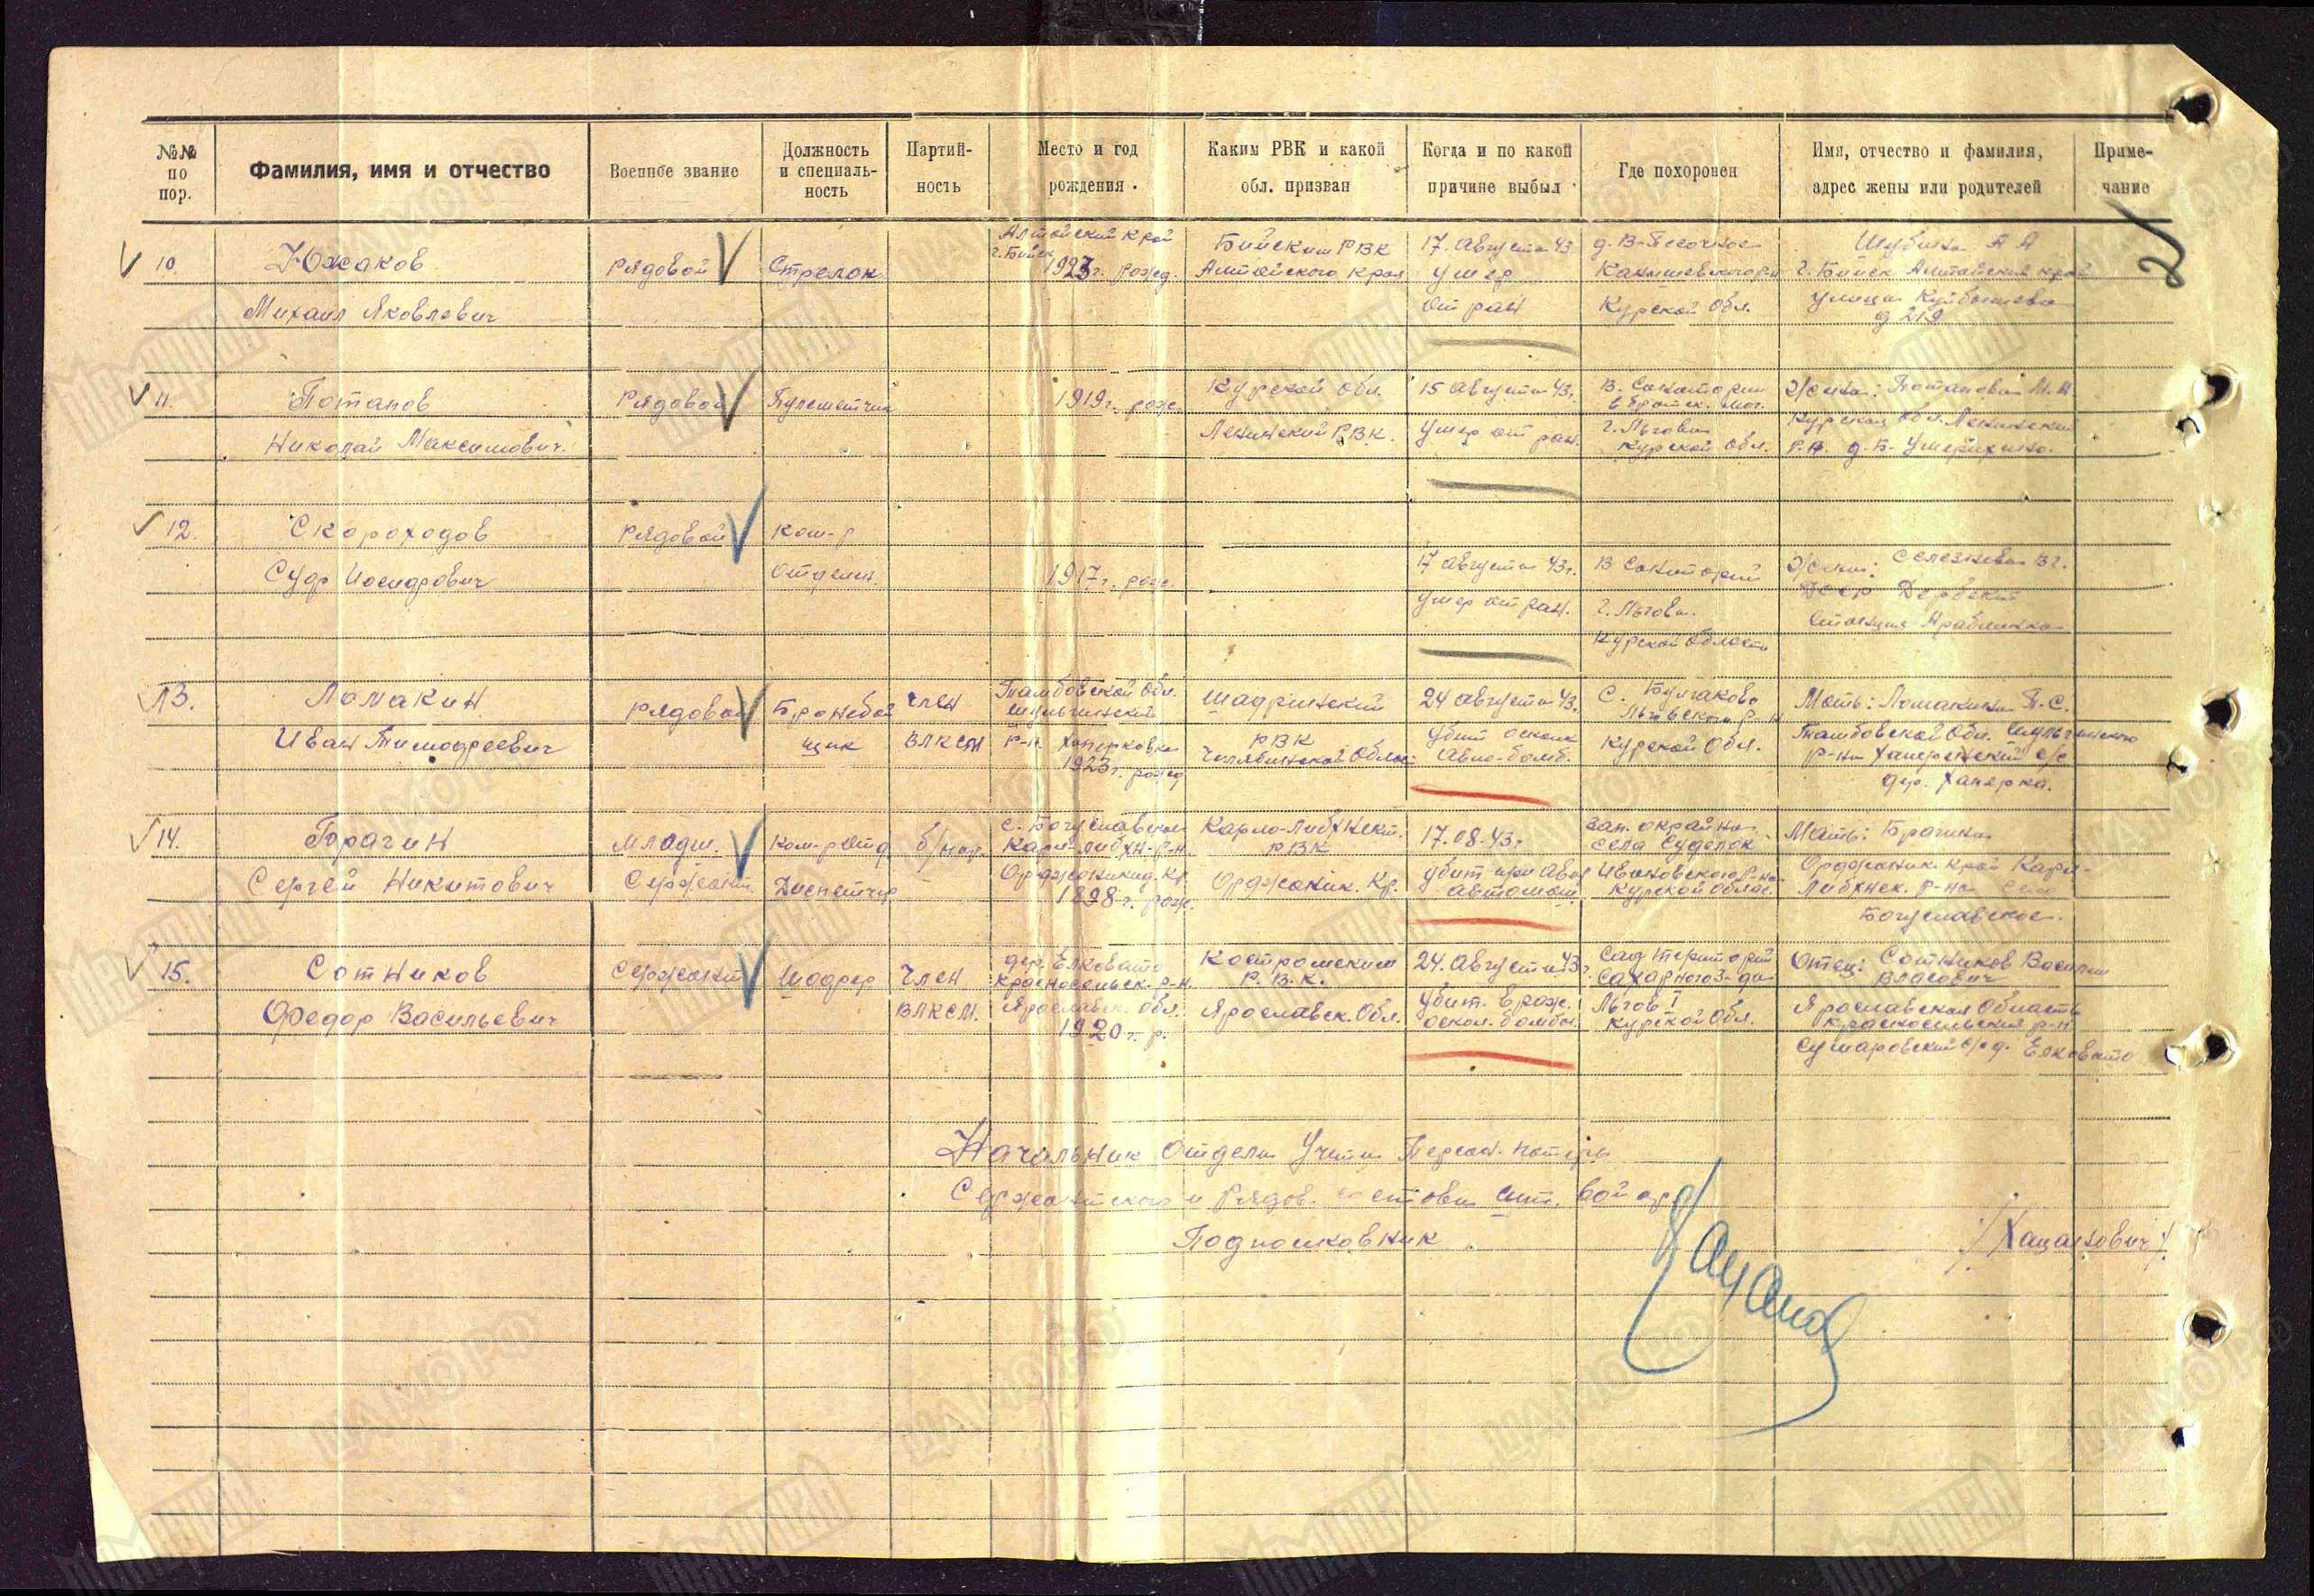 №№ по пор.
Фамилия, имя и отчество
Военное звание
Должность и специаль-ность
Партий-ность
Место и год рождения
Каким РВК и какой обл. призван
Когда и по какой причине выбыл
Где похоронен
Имя, отчество и фамилия, адрес жены или родителей
Приме-чание
21
10. Южаков Рядовой Стрелок
Михаил Яковлевич
Алтайский край
г. Бийск
1923 г. рожд.
Бийским РВК
Алтайского края
17 Августа 43
умер
от ран
д. В-Песочное
Курской обл.
г. Бийск Алтайский край
улица Куйбышева
д 219
11. Потапов Рядовой Пулеметчик
Николай Максимович
1919 г. рож.
Курской обл.
Ленинский РВК.
15 Августа 43 г.
Умер от ран.
В. Санатории
в братск. мог.
г. Льгова
Курской обл.
Жена: Потапова М. И.
Курская обл. Ленинский
12. Скороходов Рядовой Ком-р
отделен.
1917 г. рож.
17 августа 43 г.
умер от ран.
В Санаторий
г. Льгова
Курской области
Жена: Селезнева В. Г.
13. Ломакин Рядовой Бронебой
щик
Иван Тимофеевич
член
ВЛКСМ
Тамбовской обл.
р-н Хаперковка
1923 г. рожд
Шадринский
РВК
Челябинской област
24 августа 43 г.
убит оскол
Авио-бомб.
с. Булгаково
Льговского р-н
Курской обл.
Мать: Ломакина П. С.
Тамбовской обл. Шульгинского
р-на Хаперский с/с
дер. Хаперка.
14. Брагин Младш. Ком-р отд б/пар.
Сергей Никитович Сержант Диспетчер
с. Богуславское
Карл-Либкн-р-н.
Орджоникид. Кр.
1898 г. рож.
Карло-Либкнехт.
РВК
Орджоник. Кр.
17.08.43 г
убит при Авар
автомаш.
Зап. окраина
Села Суделок
Ивановского р-на
Курской облас.
Мать: Брагина
Орджоник. край Карл-
Либкнех. р-на Село
Богуславское.
15. Сотников Сержант Шофер Член
Федор Васильевич ВЛКСМ.
дер. Елковато
Красносельск. р-н.
Ярославск. обл.
1920 г. р.
Костромским
Р.В.К.
Ярославск. Обл.
24. Августа 43 г.
Убит. враж.
оскол. бомбы.
Сад территорий
Сахарного З-да
Льгов I
Курской обл.
Отец: Сотников Василий
Власович
Ярославская Область
Красносельский р-н
Сумаровский с/с д. Елковато
Начальник Отдела Учета Персон. потерь
Сержантского и Рядов. состава
Подполковник
/Хацанович/